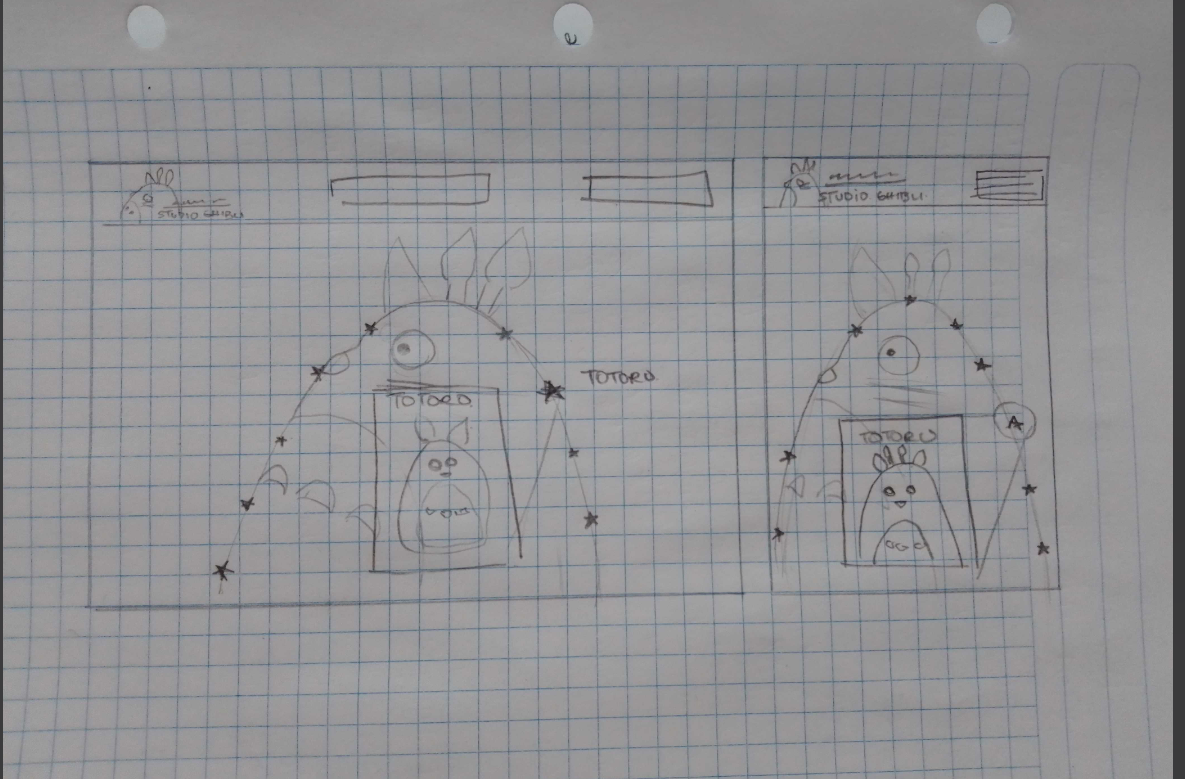 STUDIO GHIBLI
TOTORO
TOTORO
STUDIO GHIBLI
TOTORO